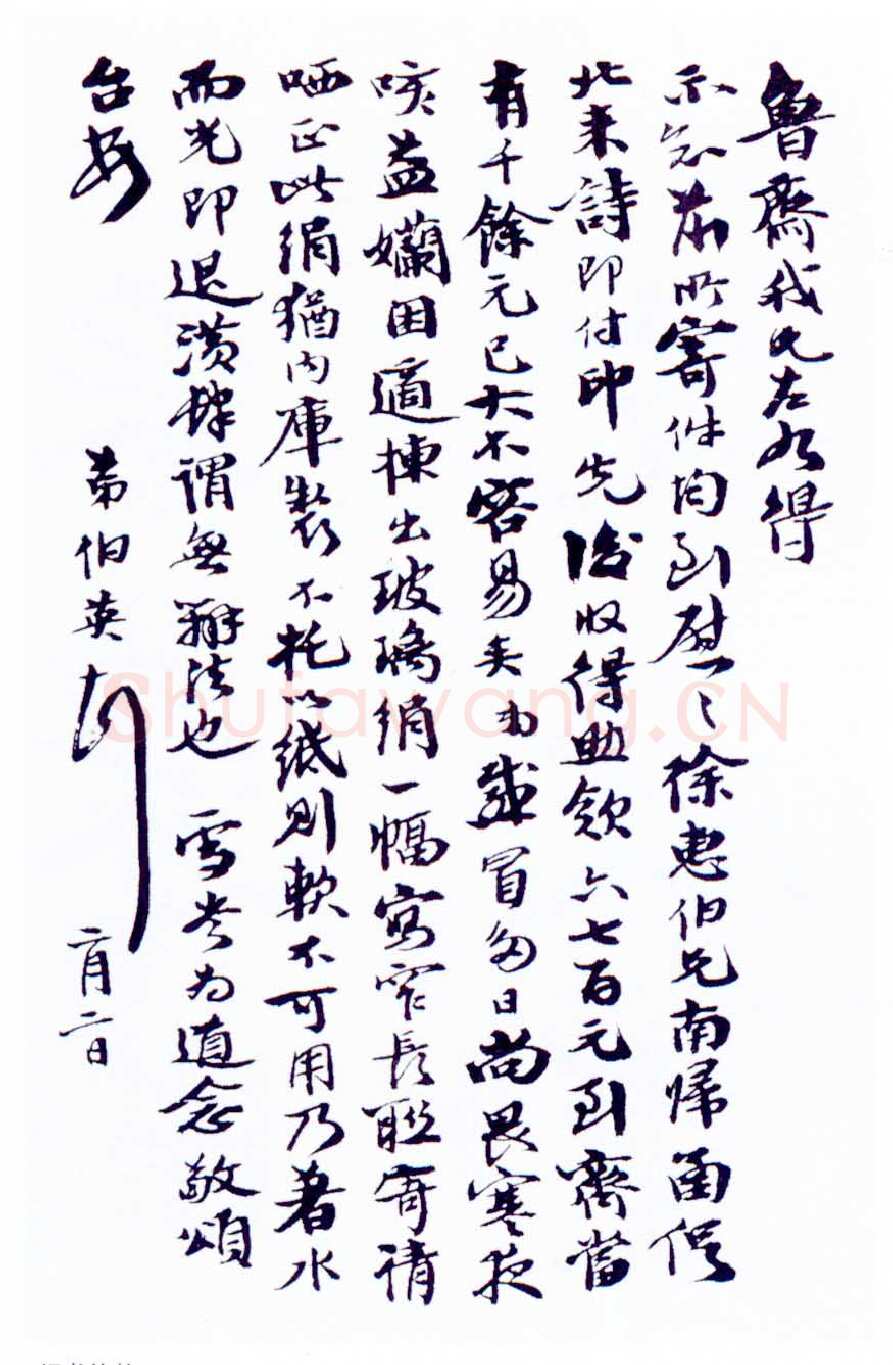 魯齋我兄左右得
示知前所寄件均到慰慰徐惠伯兄南歸函促
北來詩即付印先後收得助欵六七百元到齊當
有千餘元已大不容易矣弟感冒多日尚畏寒夜
咳益嬾困適揀出玻璃絹一幅寫窄長聯寄請
哂正此絹猶內庫製不托以紙則軟不可用乃著水
而光即退潢肆謂無辦法也 雪老為道念敬頌
台安
弟伯英頓 二月二日
Shufawang.CN